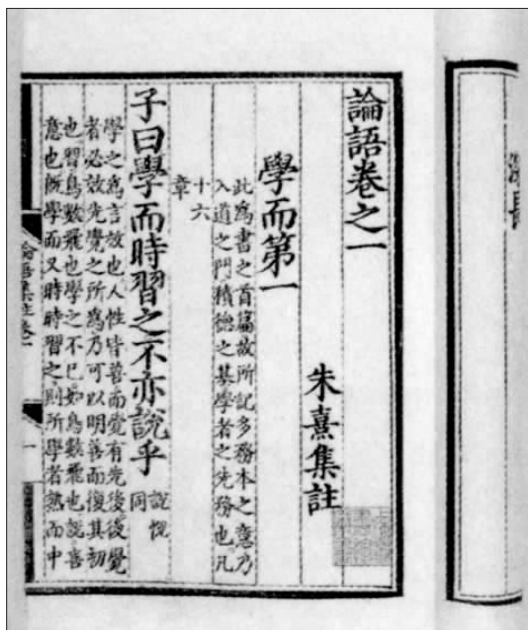 論語卷之一
朱熹集註
學而第一
此爲書之首篇故所記多務本之意乃
入道之門積德之基學者之先務也凡
十六
章
子曰學而時習之不亦說乎
說悅
同
學之爲言效也人性皆善而覺有先後後覺
者必效先覺之所爲乃可以明善而復其初
也習鳥數飛也學之不已如鳥數飛也說喜
意也旣學而又時時習之則所學者熟而中
論語集註卷一
一